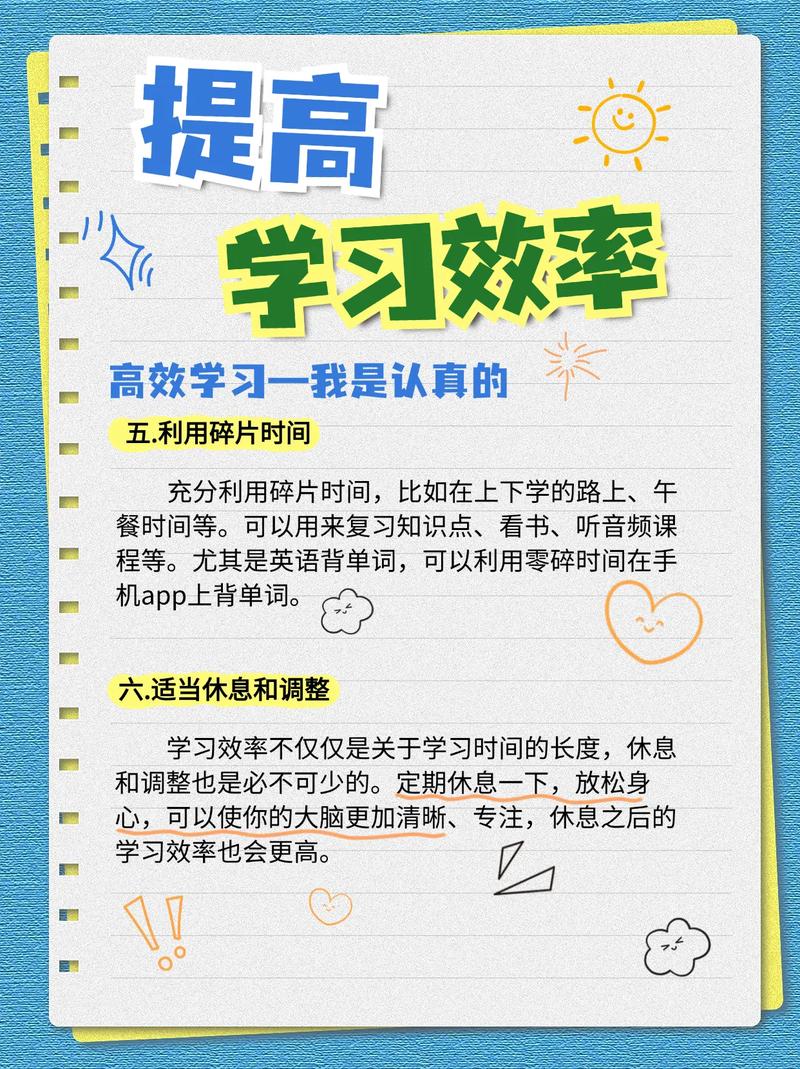 提高
学习效率
高效学习—我是认真的
五.利用碎片时间
充分利用碎片时间，比如在上下学的路上、午
餐时间等。可以用来复习知识点、看书、听音频课
程等。尤其是英语背单词，可以利用零碎时间在手
机app上背单词。
六.适当休息和调整
学习效率不仅仅是关于学习时间的长度，休息
和调整也是必不可少的。定期休息一下，放松身
心，可以使你的大脑更加清晰、专注，休息之后的
学习效率也会更高。